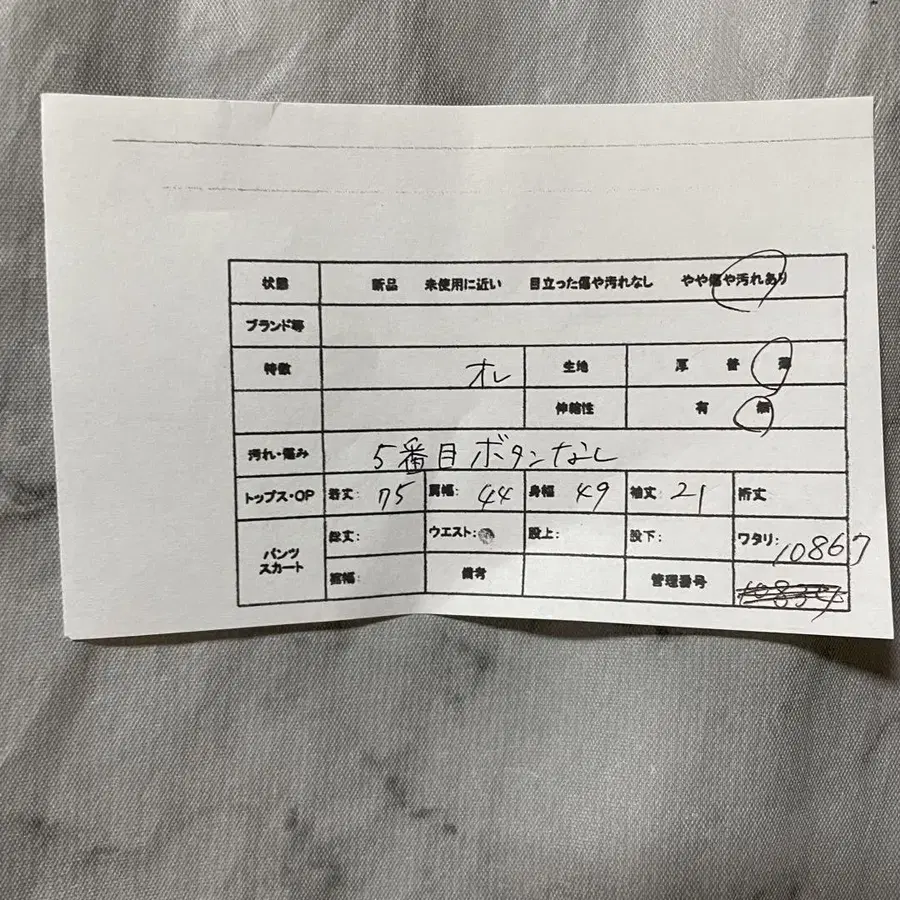 状態 新品 未使用に近い 目立った傷や汚れなし やや傷や汚れあり
ブランド等
特徴 オレ 生地 厚 普 薄
伸縮性 有 無
汚れ・傷み 5番目ボタンなし
トップス・OP 着丈: 75 肩幅: 44 身幅: 49 袖丈: 21 裄丈
パンツ スカート 総丈: ウエスト: 股上: 股下: ワタリ: 10867
裾幅: 備考 管理番号